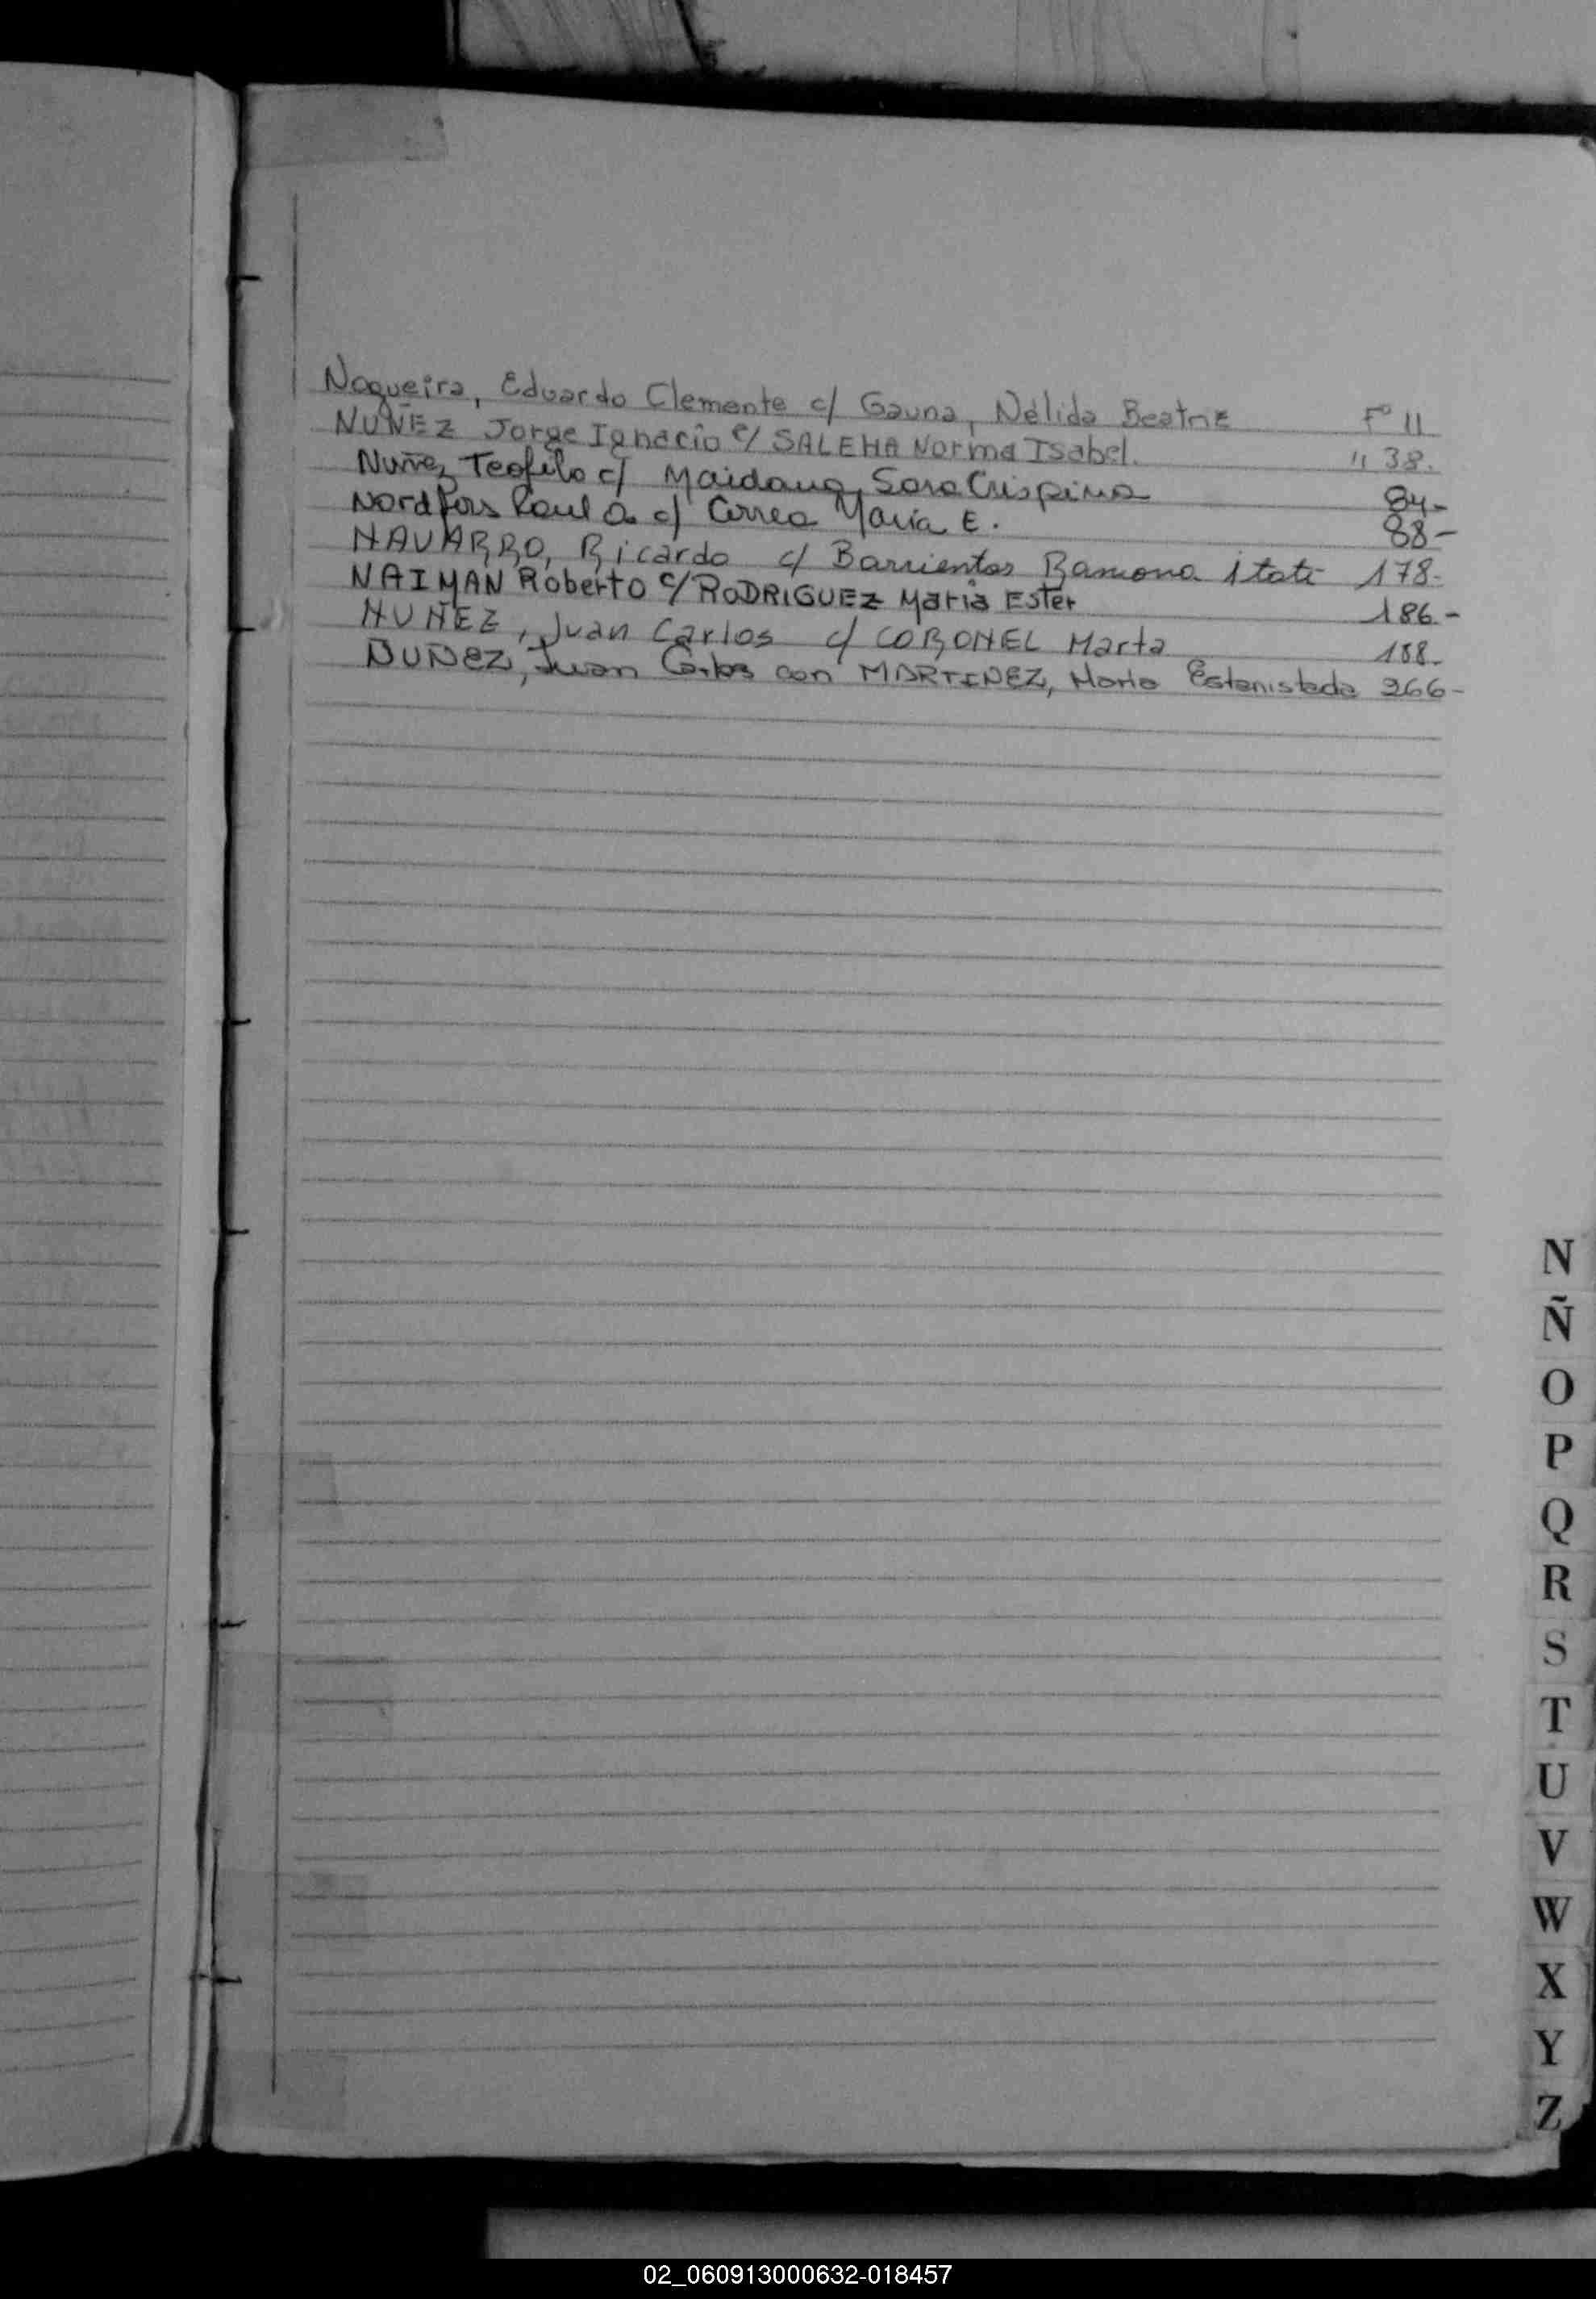 Noqueira, Eduardo Clemente c/ Gauna, Nélida Beatriz Fº 11
NUÑEZ Jorge Ignacio c/ SALEHA Norma Isabel. " 38.
Nuñez Teofilo c/ Maidana, Sara Crispina 84-
Raul A. c/ Correa Maria E. 88-
NAVARRO, Ricardo c/ Barrientos Ramona itati 178-
NAIMAN Roberto c/ RODRIGUEZ Maria Ester 186-
NUÑEZ, Juan Carlos c/ CORONEL Marta 188-
NUÑEZ, Juan Carlos con MARTINEZ, Maria Estanislada 266-
N
Ñ
O
P
Q
R
S
T
U
V
W
X
Y
Z
02_060913000632-018457